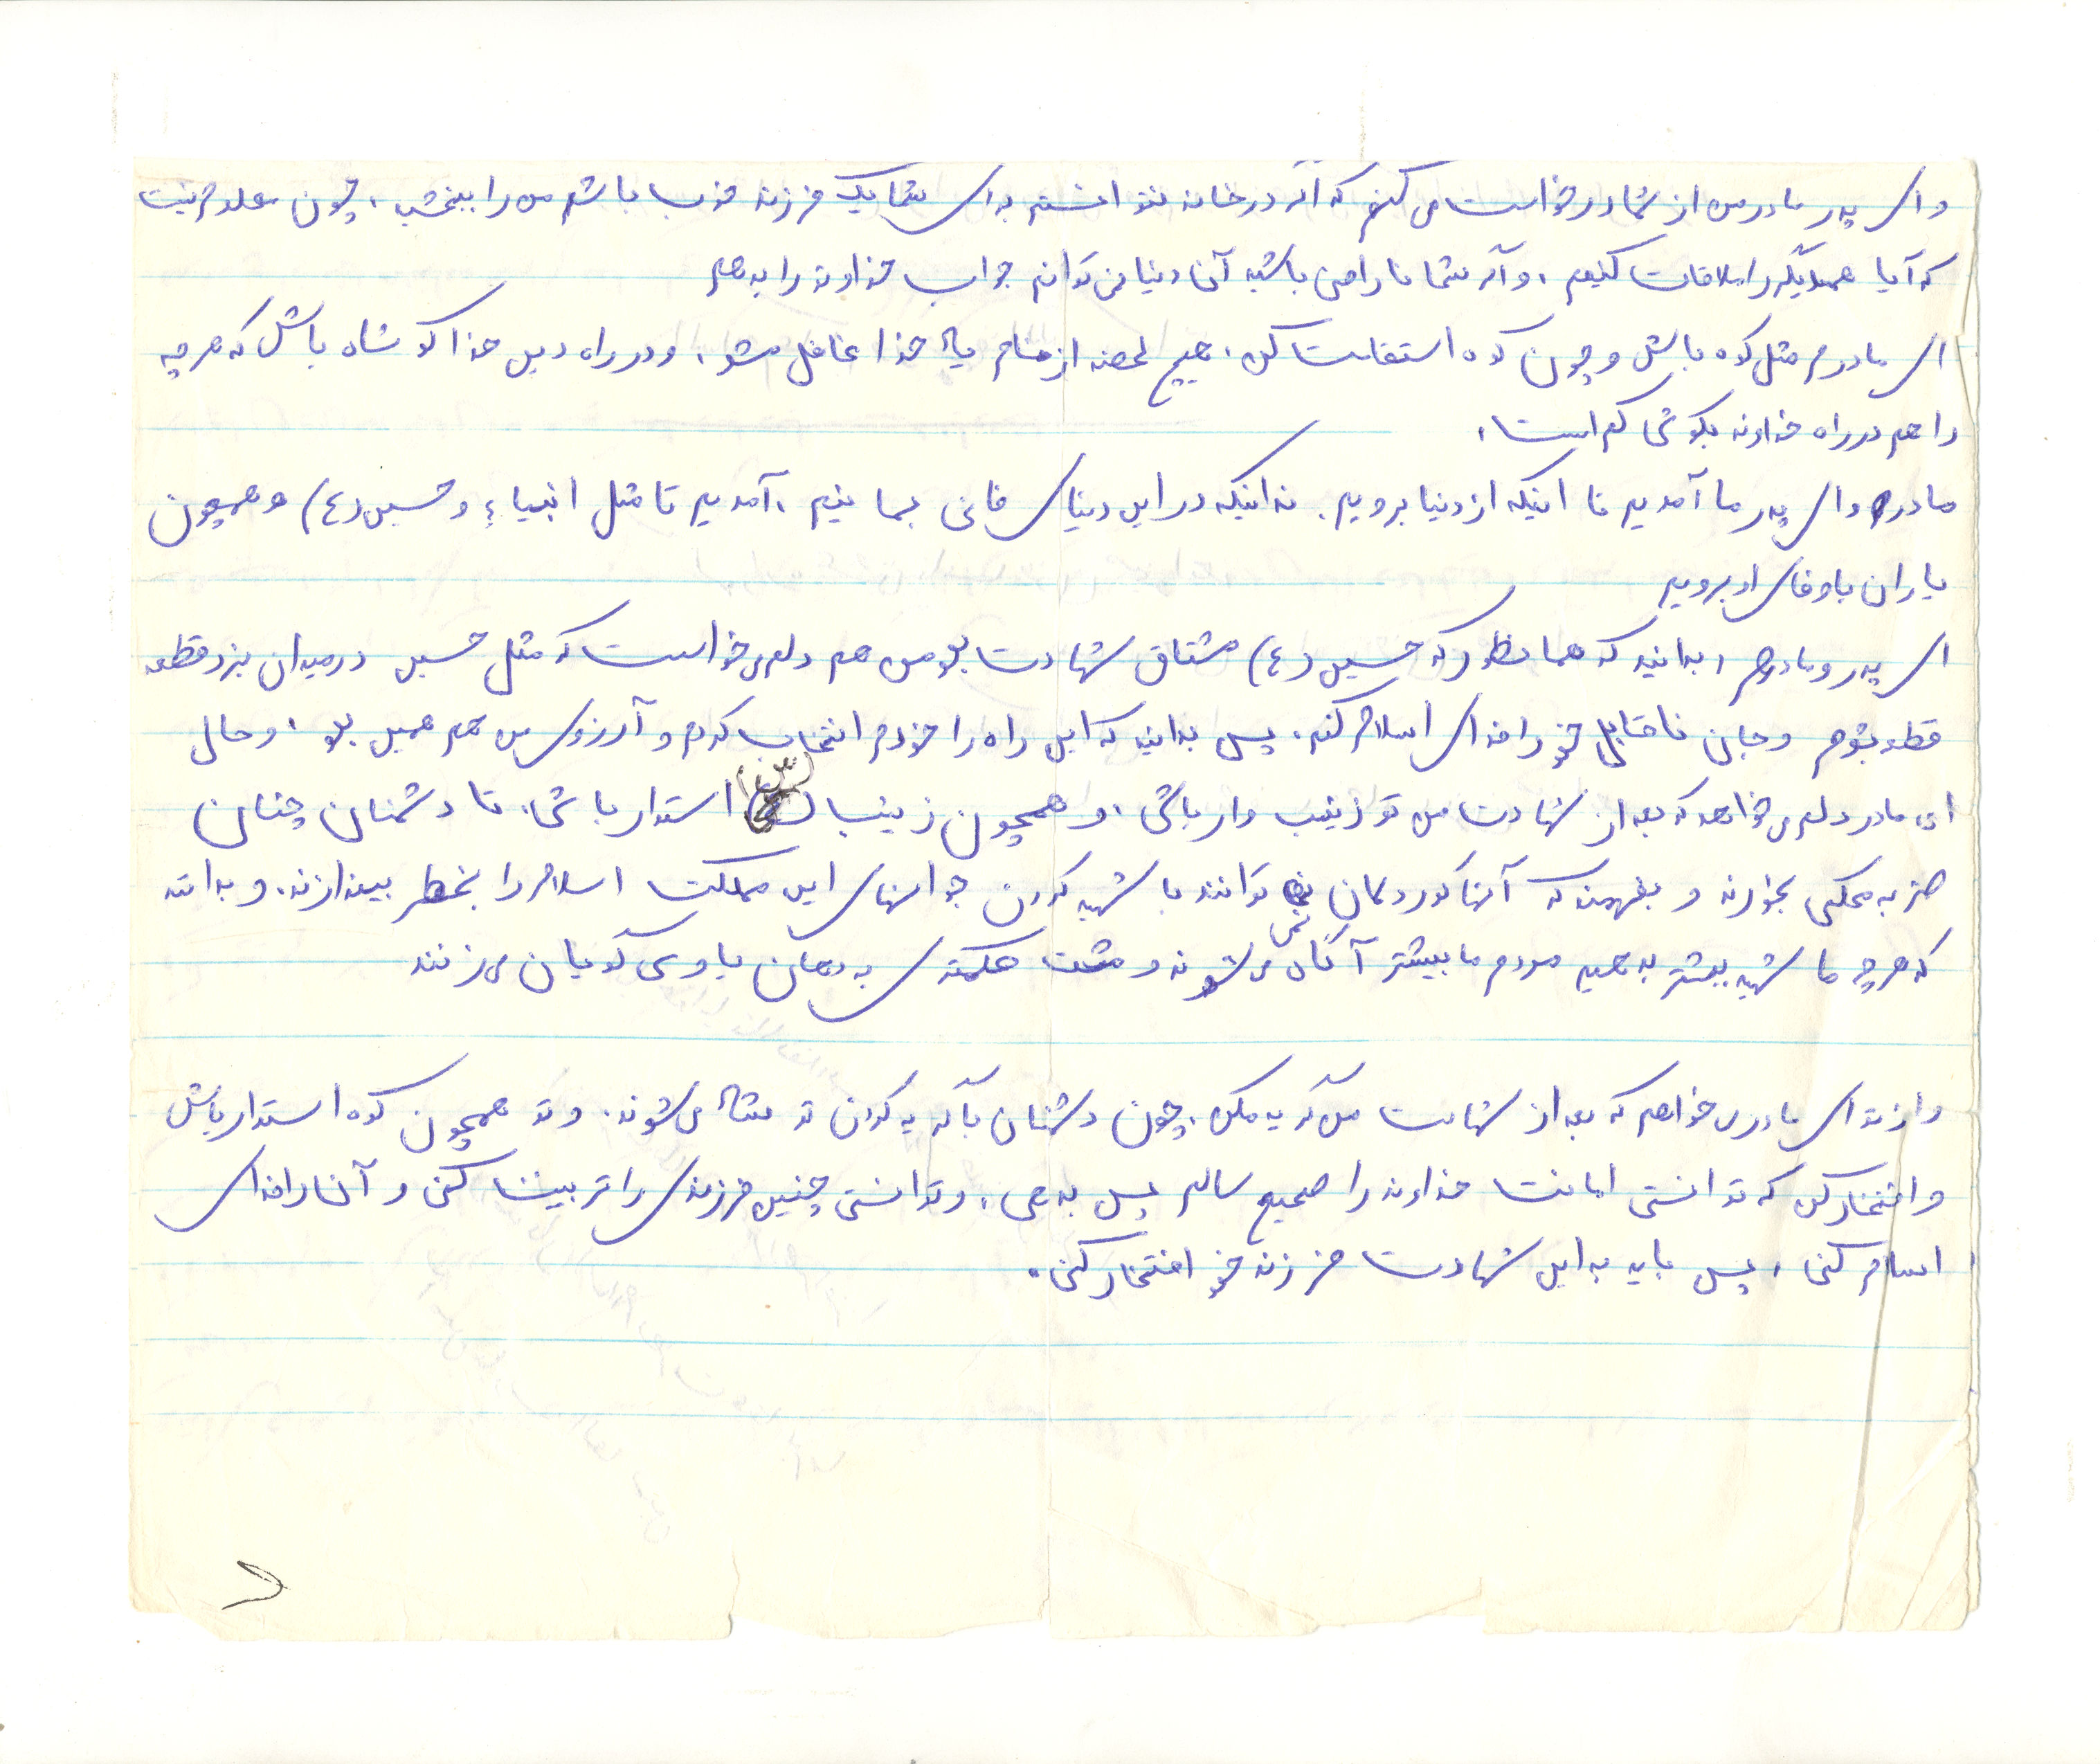 و ای پدر مادر من از شما درخواست می کنم که اگر در خانه نتوانستم برای شما یک فرزند خوب باشم من را ببخشید، چون معلوم نیست
که آیا همدیگر را ملاقات کنیم، و اگر شما ناراضی باشید آن دنیا نمی توانم جواب خداوند را بدهم
ای مادرم مثل کوه باش و چون کوه استقامت کن، هیچ لحضه از یاد خدا غافل مشو، و در راه دین خدا کوشاه باش که هر چه
را هم در راه خداوند بکوشی کم است،
مادرم و ای پدر ما آمدیم تا اینکه از دنیا برویم. نه اینکه در این دنیای فانی بمانیم، آمدیم تا مثل انبیاء و حسین (ع) و همچون
یاران باوفای او برویم
ای پدر و مادرم، بدانید که همانطور که حسین (ع) مشتاق شهادت بود من هم دلم می خواست که مثل حسین در میدان نبرد قطعه
قطعه بشوم و جان ناقابل خود را فدای اسلام کنم. پس بدانید که این راه را خودم انتخاب کردم و آرزوی من هم همین بود، و حال
ای مادر دلم می خواهد که بعد از شهادت من تو زینب وار باشی، و همچون زینب استدار باشی، تا دشمنان چنان
ضربه محکمی بخورند و بفهمند که آنها کوردلان نمی توانند با شهید کردن جوانهای این مملکت اسلام را بخطر بیندازند. و بدانند
که هر چه ما شهید بیشتر بدهیم مردم ما بیشتر آگاه می شوند و مشت محکمتری به دهان یاوه گویان می زنند
و از تو ای مادر می خواهم که بعد از شهادت من گریه مکن، چون دشمنان با گریه کردن تو شاد می شوند. و تو همچون کوه استدار باش
و افتخار کن که توانستی امانت خداوند را صحیح سالم پس بدهی، و توانستی چنین فرزندی را تربیت کنی و آن را فدای
اسلام کنی، پس باید به این شهادت فرزند خود افتخار کنی.